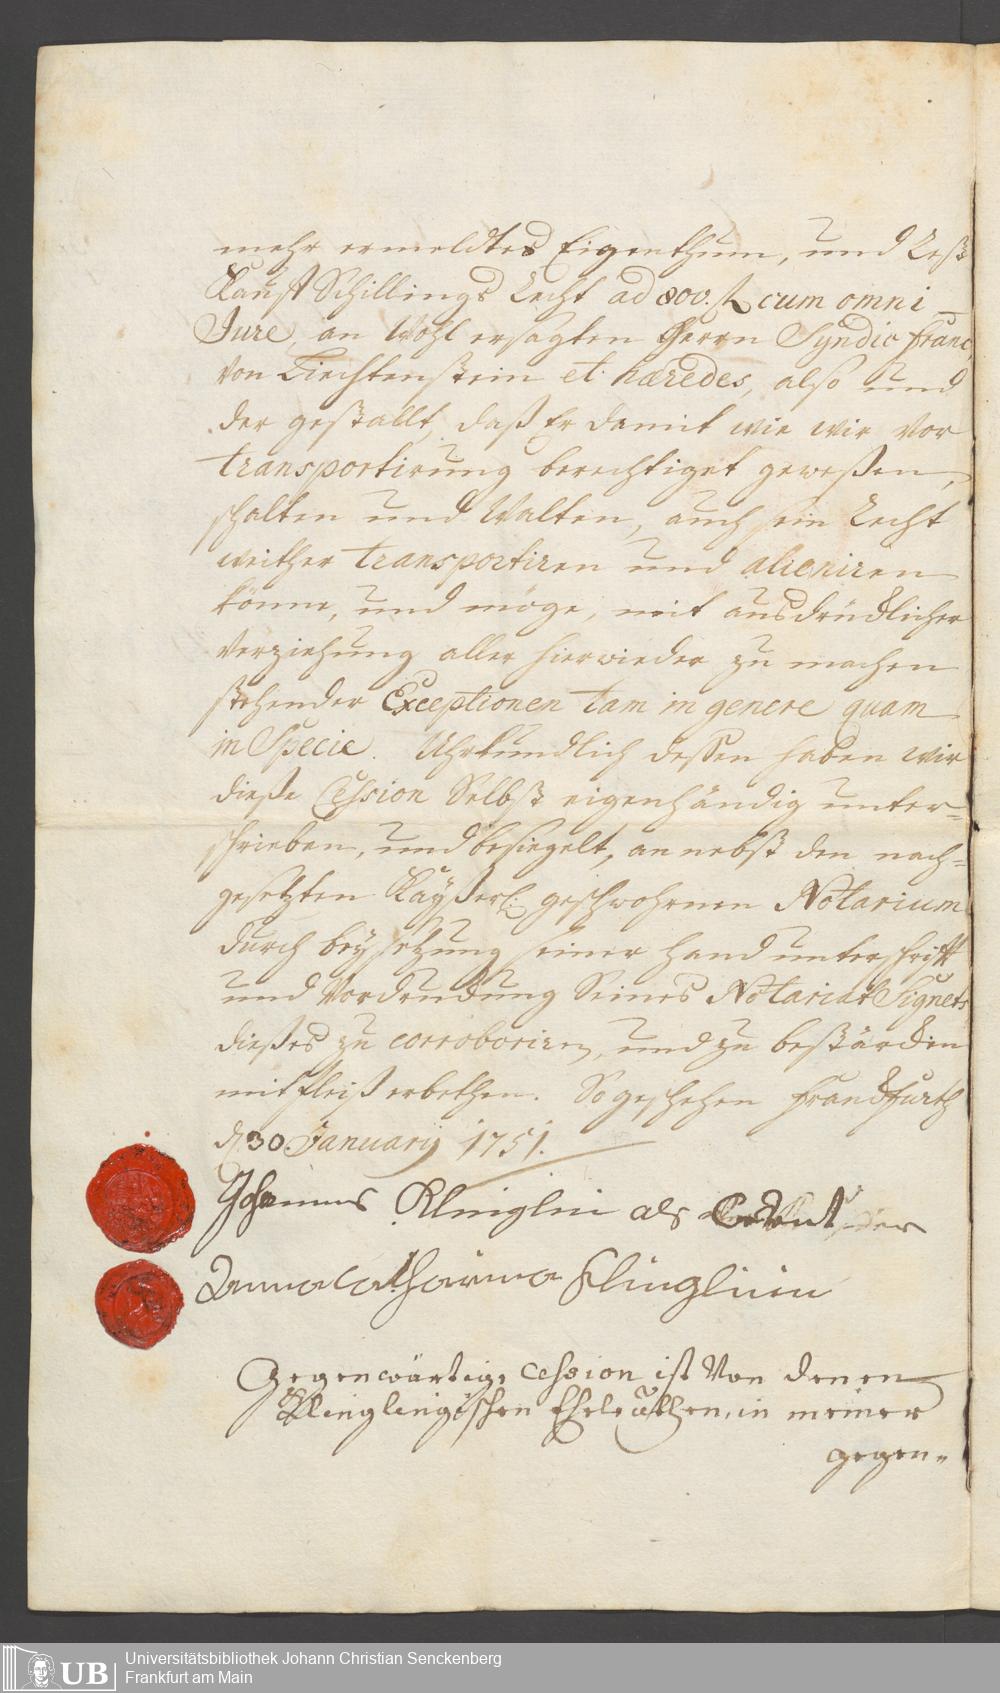 mehr ermeldtes Eigenthum, und Rest
Kauf Schillings Recht ad 800. fl. cum omni
Jure, an Wohl ersagten Herrn Syndic Franc
von Liechtenstein et hæredes, also und
der gestallt, daß Er damit wie wir vor
transportirung berechtiget geweßen,
schalten und Walten, auch sein Recht
weither transportiren und alieniren
könne, und möge, mit ausdrücklicher
Verziehung aller hierwieder zu machen
stehender Exceptionen tam in genere quam
in Specie. Uhrkundlich dessen haben wir
dieße Cession Selbst eigenhändig unter=
schrieben, und besiegelt, an nebst den nach=
gesetzten Kayßerl: geschwohrnen Notarium
durch beysetzung seiner Hand unterschrifft
und Vordruckung Seines Notariat Signets
dießes zu corroboriren, und zu bestärcken
mit fleiß erbethen. So geschehen Franckfurth
d. 30. January 1751.
Johannes Klinglin als Cedent
Anna Catharina Klinglinin
Gegenwärtige Cession ist Von denen
Klinglingischen Eheleuthen, in meiner
gegen=
Universitätsbibliothek Johann Christian Senckenberg
Frankfurt am Main
UB